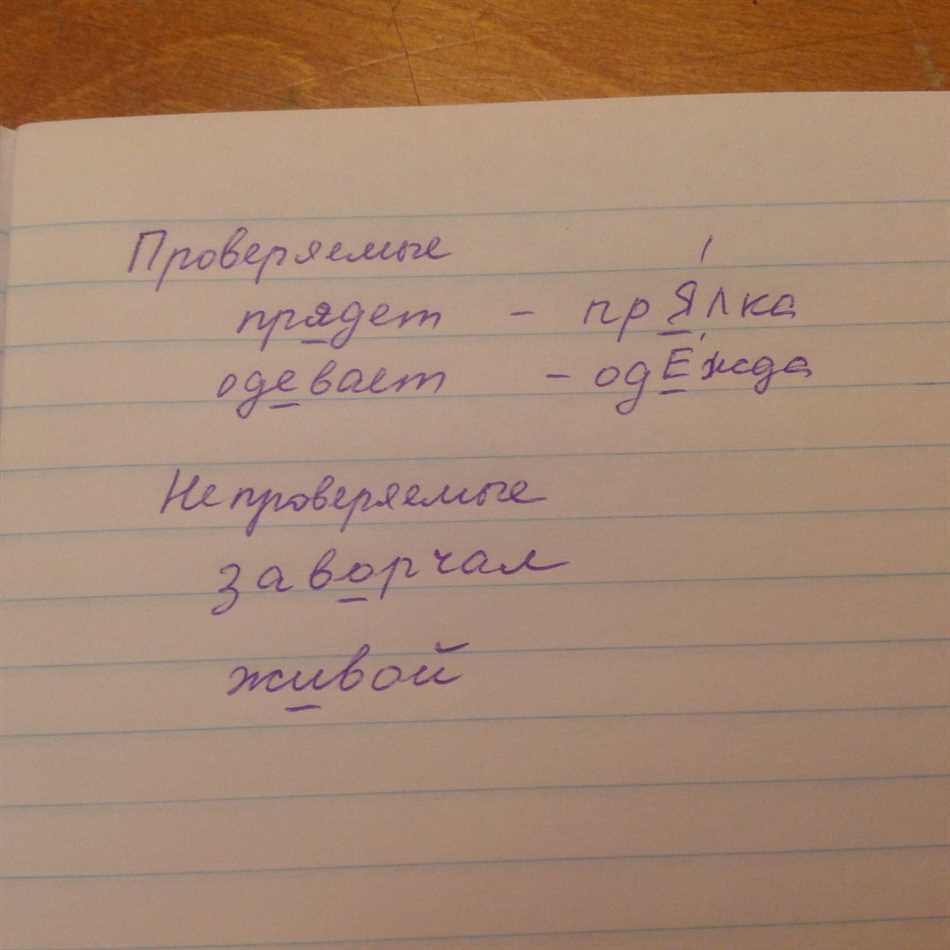 Проверяемые
прядет - прЯ́лка
одевает - одЕ́жда
Непроверяемые
заворчал
живой